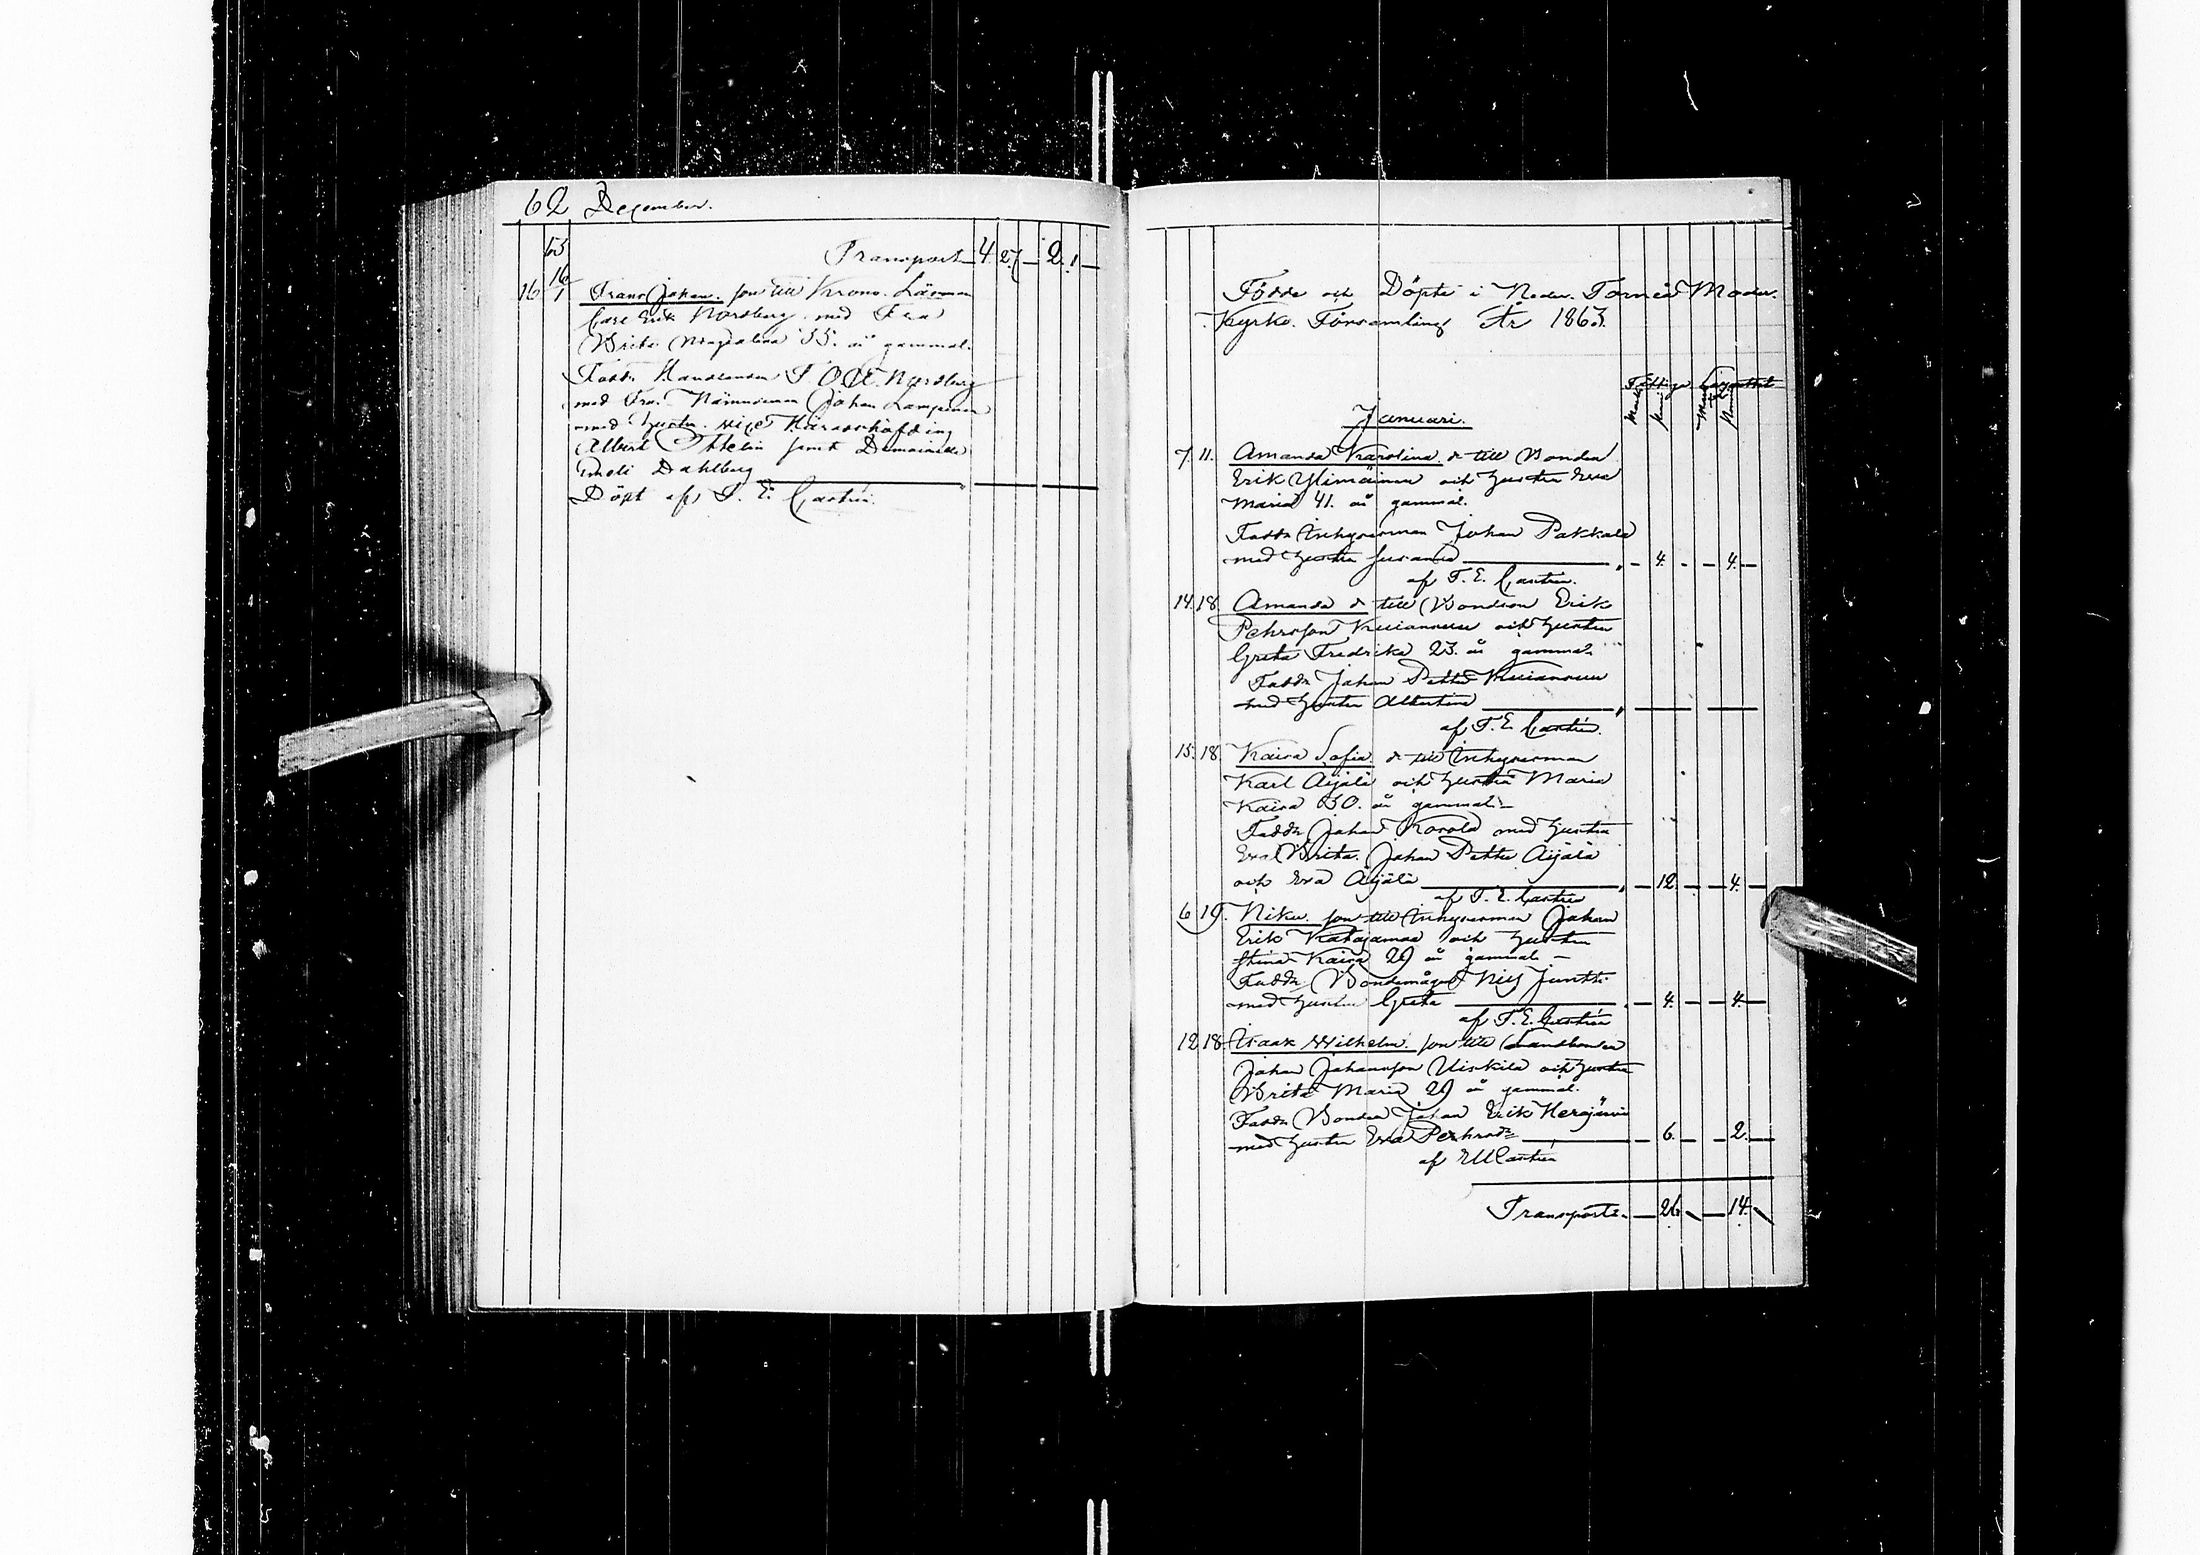 62 December.
63
Transport 4 27 — 2. 1 —
16 16/1 Frans Johan. son till Krono Länsman
Carl Erik Nordberg med Fru
Brita Magdalena 35. år gammal.
Faddr Handlanden P O U. Nordberg
med Fru. Nämndeman Johan Lampinen
med hustru. vice Häradshöfding
Albert Ottelin samt Demoiselle
Emeli Dahlberg — —
Döpt af F. E. Castrén.
Födde och Döpte i Neder. Torneå Moder.
Kyrko. Församling År 1863.
Fattiga Lazarettet
Januari.
7. 11. Amanda Karolina. d. till Bonden
Erik Ylimäinen och hustru Eva
Maria 41. år gammal.
Faddr Inhysesman Johan Pakkala
med hustru Susanna — 4. — — 4. —
af F. E. Castrén.
14. 18. Amanda d. till Bondson Erik
Pehrsson Kuivanen och hustru
Greta Fredrika 23. år gammal.
Faddr Johan Petter
med hustru Albertina — —
af F. E. Castrén.
15. 18. Kaisa Sofia. d. till Inhysesman
Karl Äijälä och hustru Maria
Kaisa 30. år gammal. —
Faddr Johan Korola med hustru
Eva Brita. Johan Petter Äijälä
och Eva Äijälä — 12. — — 4. —
af F. E. Castrén
6 19. Niku. son till Inhysesman Johan
Erik Katajamaa och hustru
Stina Kaisa 29 år gammal —
Faddr Bondemågen Nils Juntti
med hustru Greta — 4. — — 4. —
af F. E. Castrén
12. 18. Isaak Wilhelm. son till Landbonden
Johan Johansson Uiskila och hustru
Brita Maria 29 år gammal.
Faddr Bonden Johan Erik Herajärvi
med hustru Eva Pehrsdr — 6. — — 2. —
af Castrén
Transport. — 26. — — 14. —